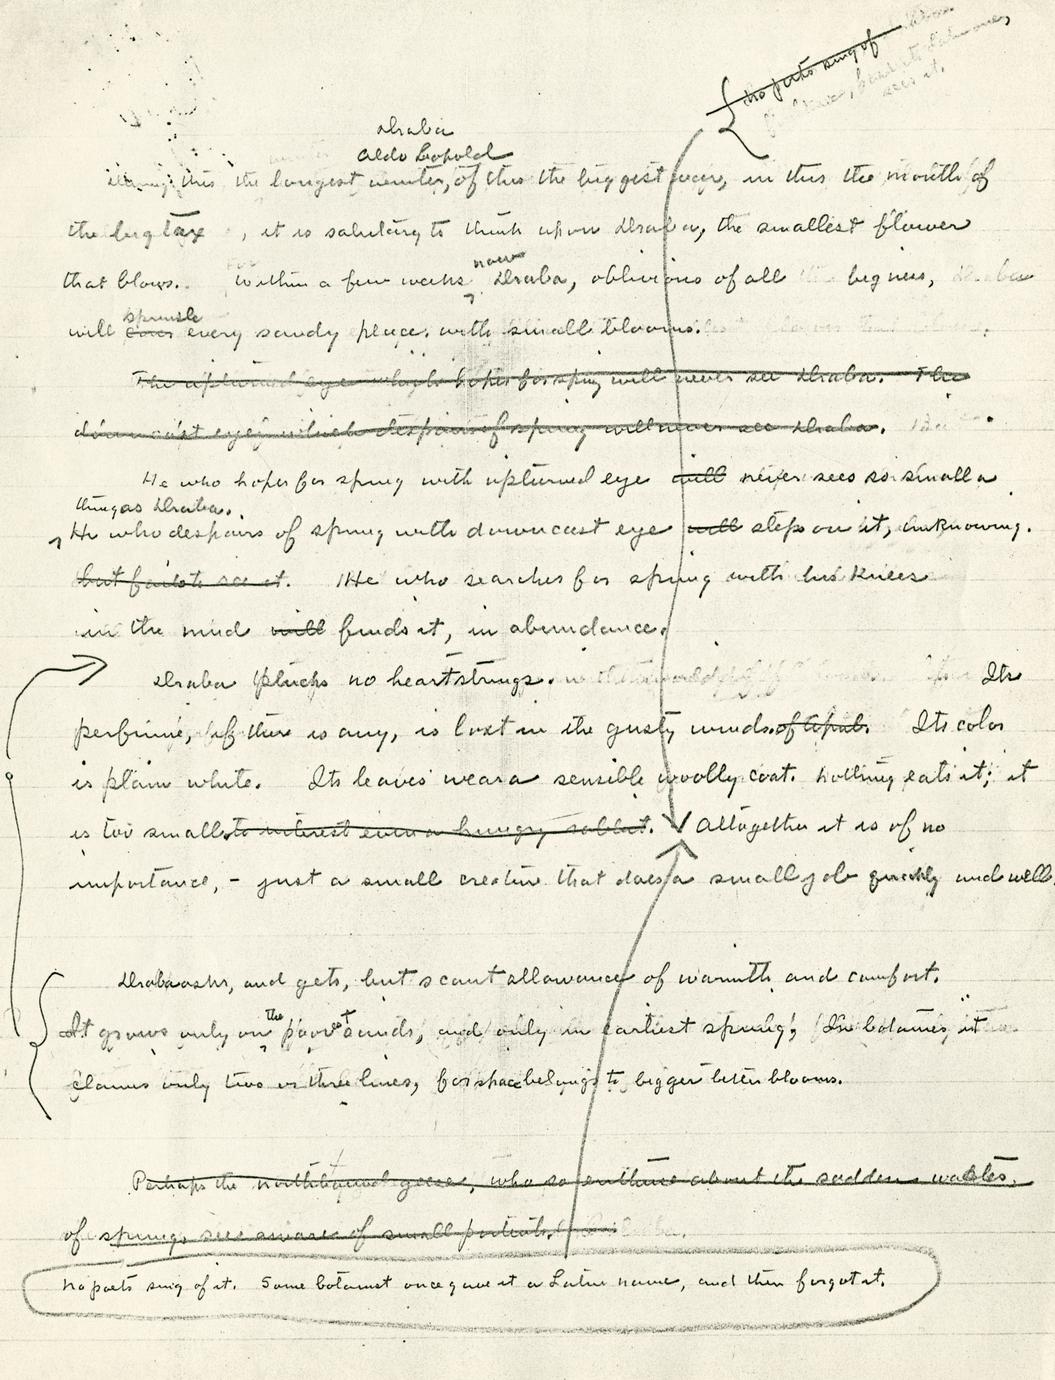 no poets sing of
sees it.
Draba
Aldo Leopold
During this the longest winter, of this the biggest war, in this the month of
the big tax, it is salutary to think upon Draba, the smallest flower
now
that blows. Within a few weeks Draba, oblivious of all bigness,
sprinkle
will every sandy place with small blooms.
The upturned eye which hopes for spring will never see Draba. The
downcast eye which despairs of spring will never see Draba.
He who hopes for spring with upturned eye will never sees so small a
thing as Draba.
He who despairs of spring with downcast eye will steps on it, unknowing.
but fails to see it. He who searches for spring with his knees
in the mud will finds it, in abundance.
Draba plucks no heartstrings. Its
perfume, if there is any, is lost in the gusty winds of April. Its color
is plain white. Its leaves wear a sensible woolly coat. Nothing eats it; it
is too small to interest even a hungry rabbit. Altogether it is of no
importance, - just a small creature that does a small job quickly and well.
Draba asks, and gets, but scant allowance of warmth and comfort.
the
It grows only on poorest sands, and only in earliest spring; In botanies, it
claims only two or three lines, for space belongs to bigger better blooms.
Perhaps the northbound geese, who so enthuse about the sudden
of spring, are aware of small portents.
No poets sing of it. Some botanist once gave it a Latin name, and then forgot it.